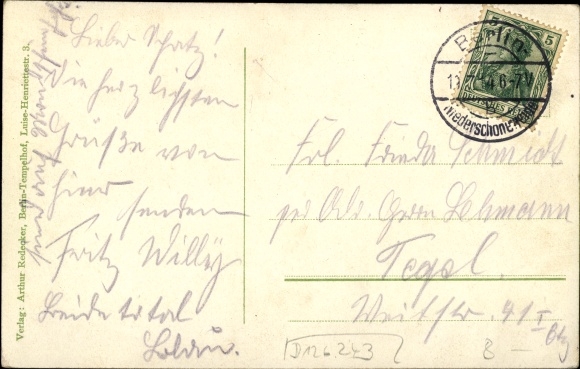 Lieber Schatz!
Die herzlichsten
Grüße von
hier senden
Fritz Willy
Beide total
Verlag: Arthur Redecker, Berlin-Tempelhof, Luise-Henriettestr. 3.
Berlin-
6-7 N
Niederschöneweide
5 5
DEUTSCHES REICH
Frl. Frieda Schmidt
per Adr. Herrn Lehmann
Tegel.
Veitstr. 41 I
D126243
8 –